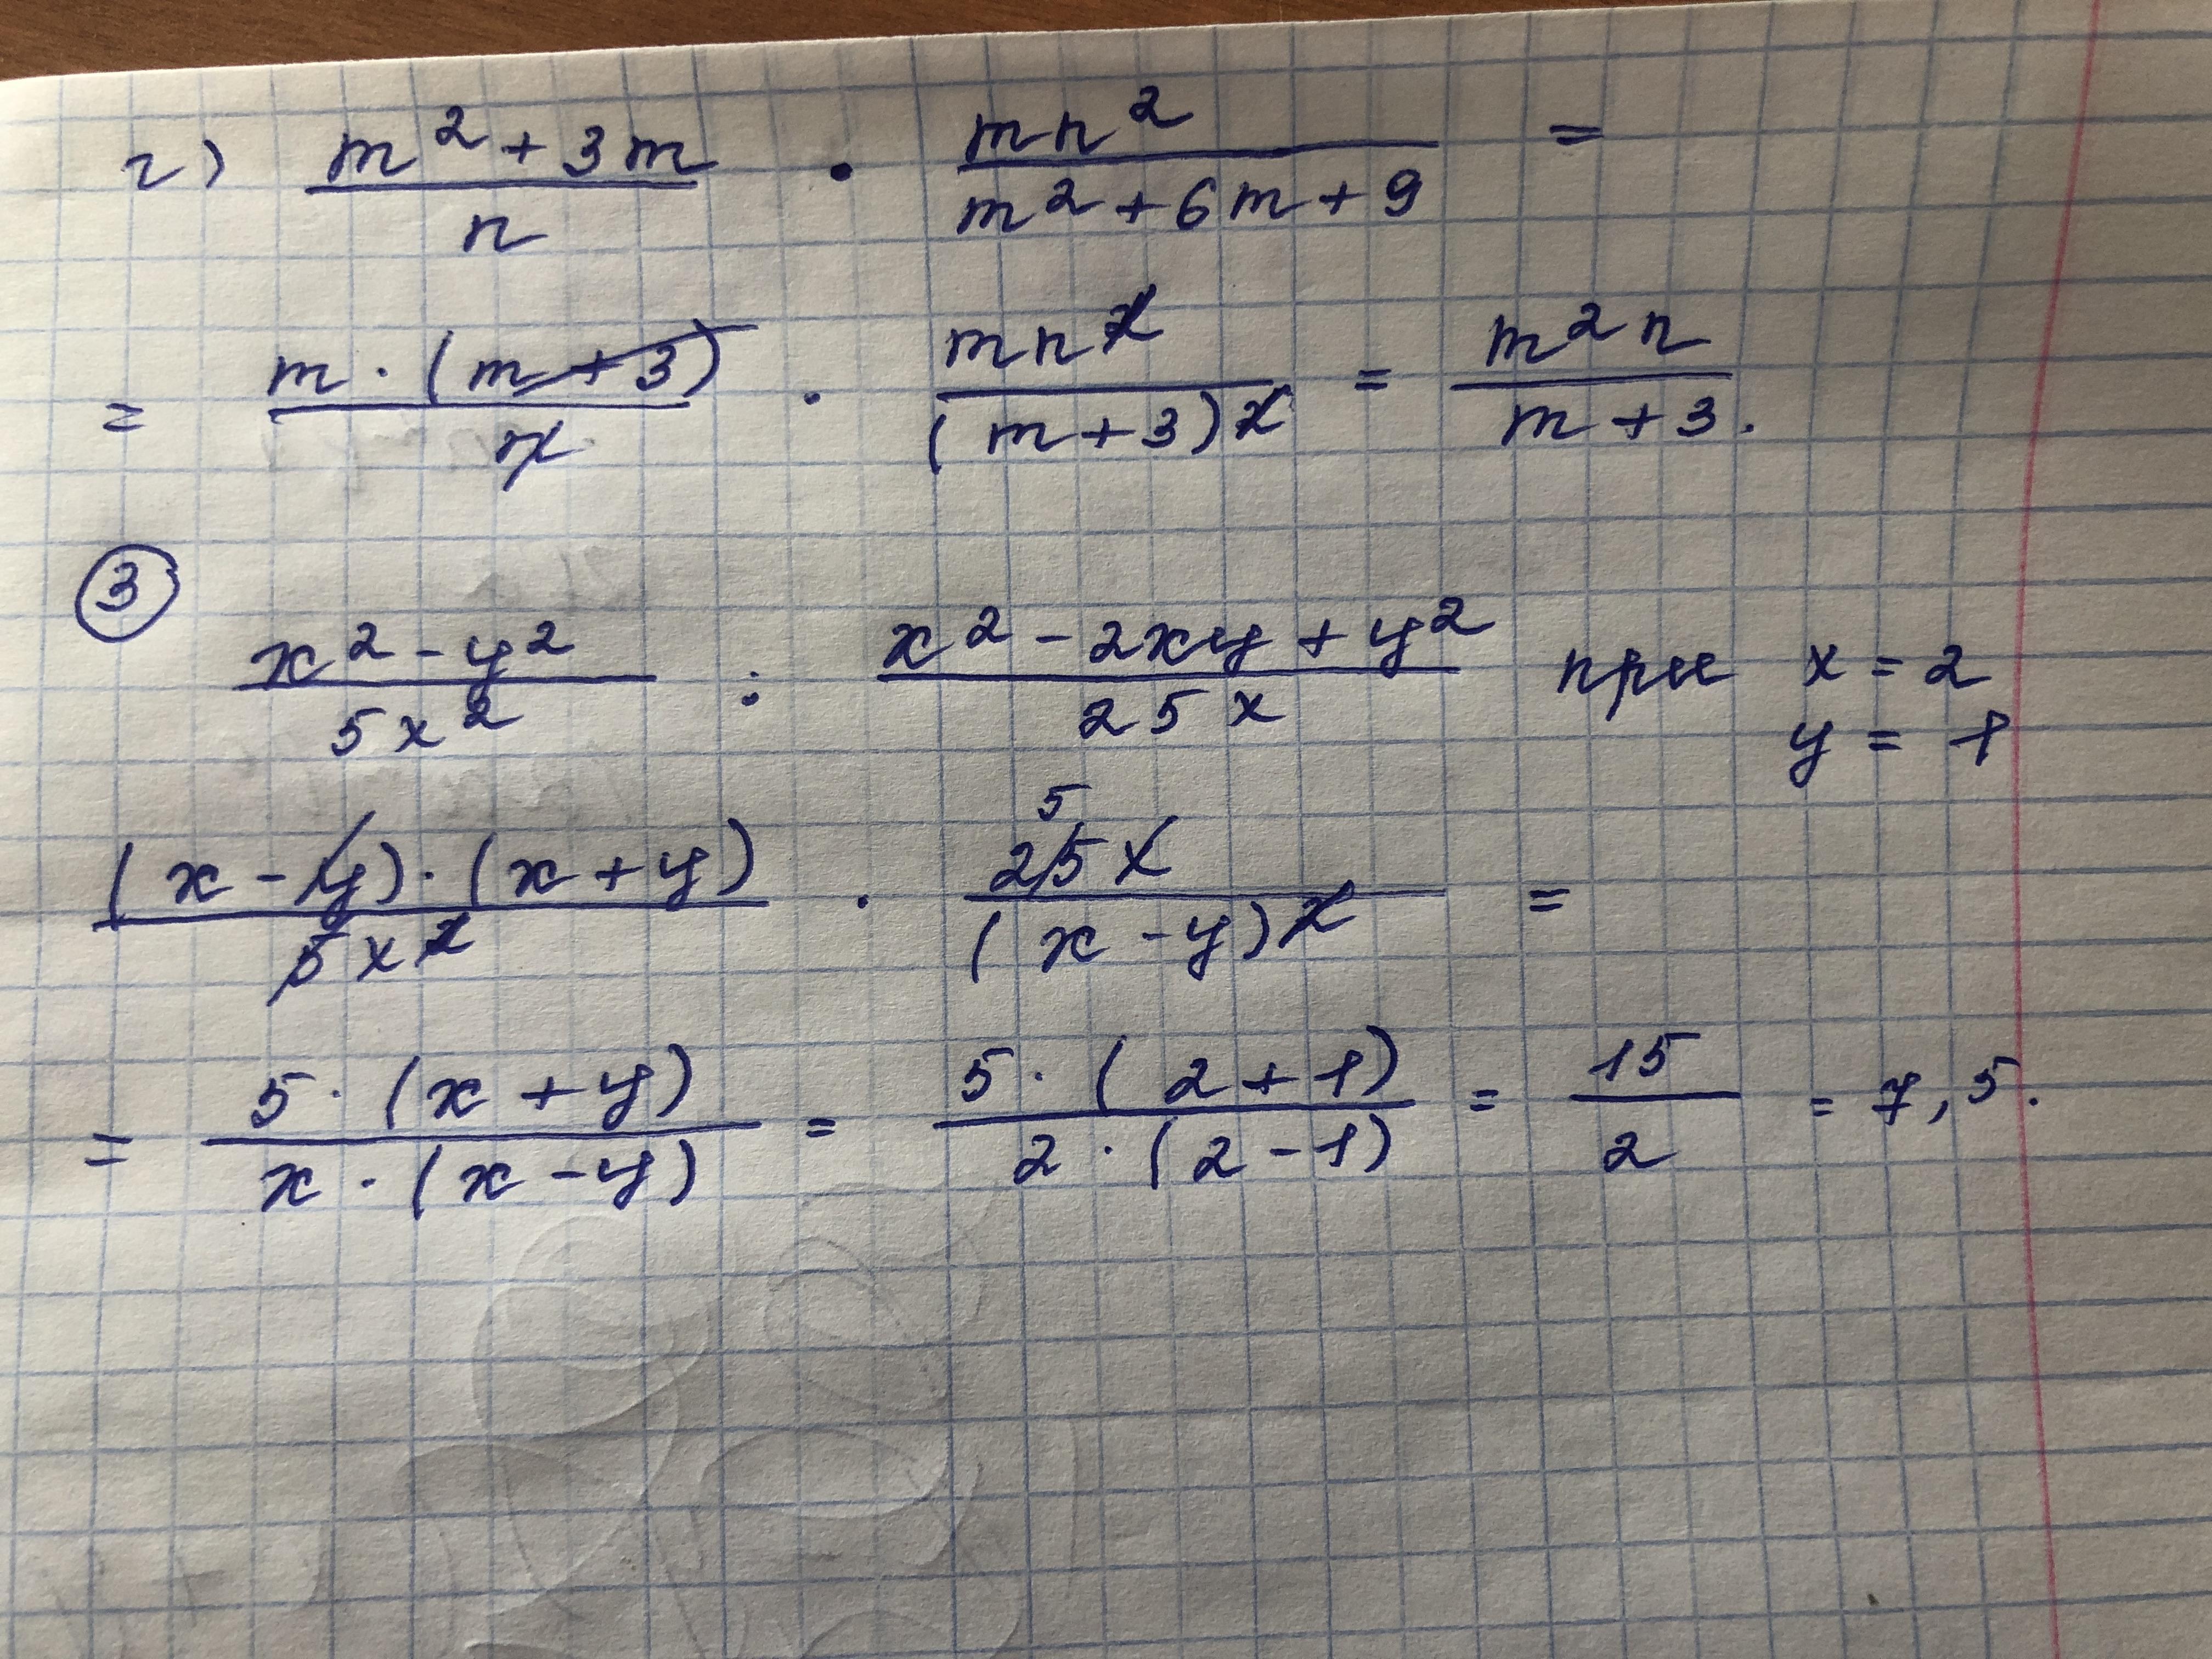 г) (m² + 3m)/n · mn²/(m² + 6m + 9) =
= m · (m + 3)/n · mn²/(m + 3)² = m²n/(m + 3).
③
(x² - y²)/5x² : (x² - 2xy + y²)/25x при x = 2
y = 1
(x - y) · (x + y)/5x² · 25x/(x - y)² = 5
= 5 · (x + y)/x · (x - y) = 5 · (2 + 1)/2 · (2 - 1) = 15/2 = 7,5.